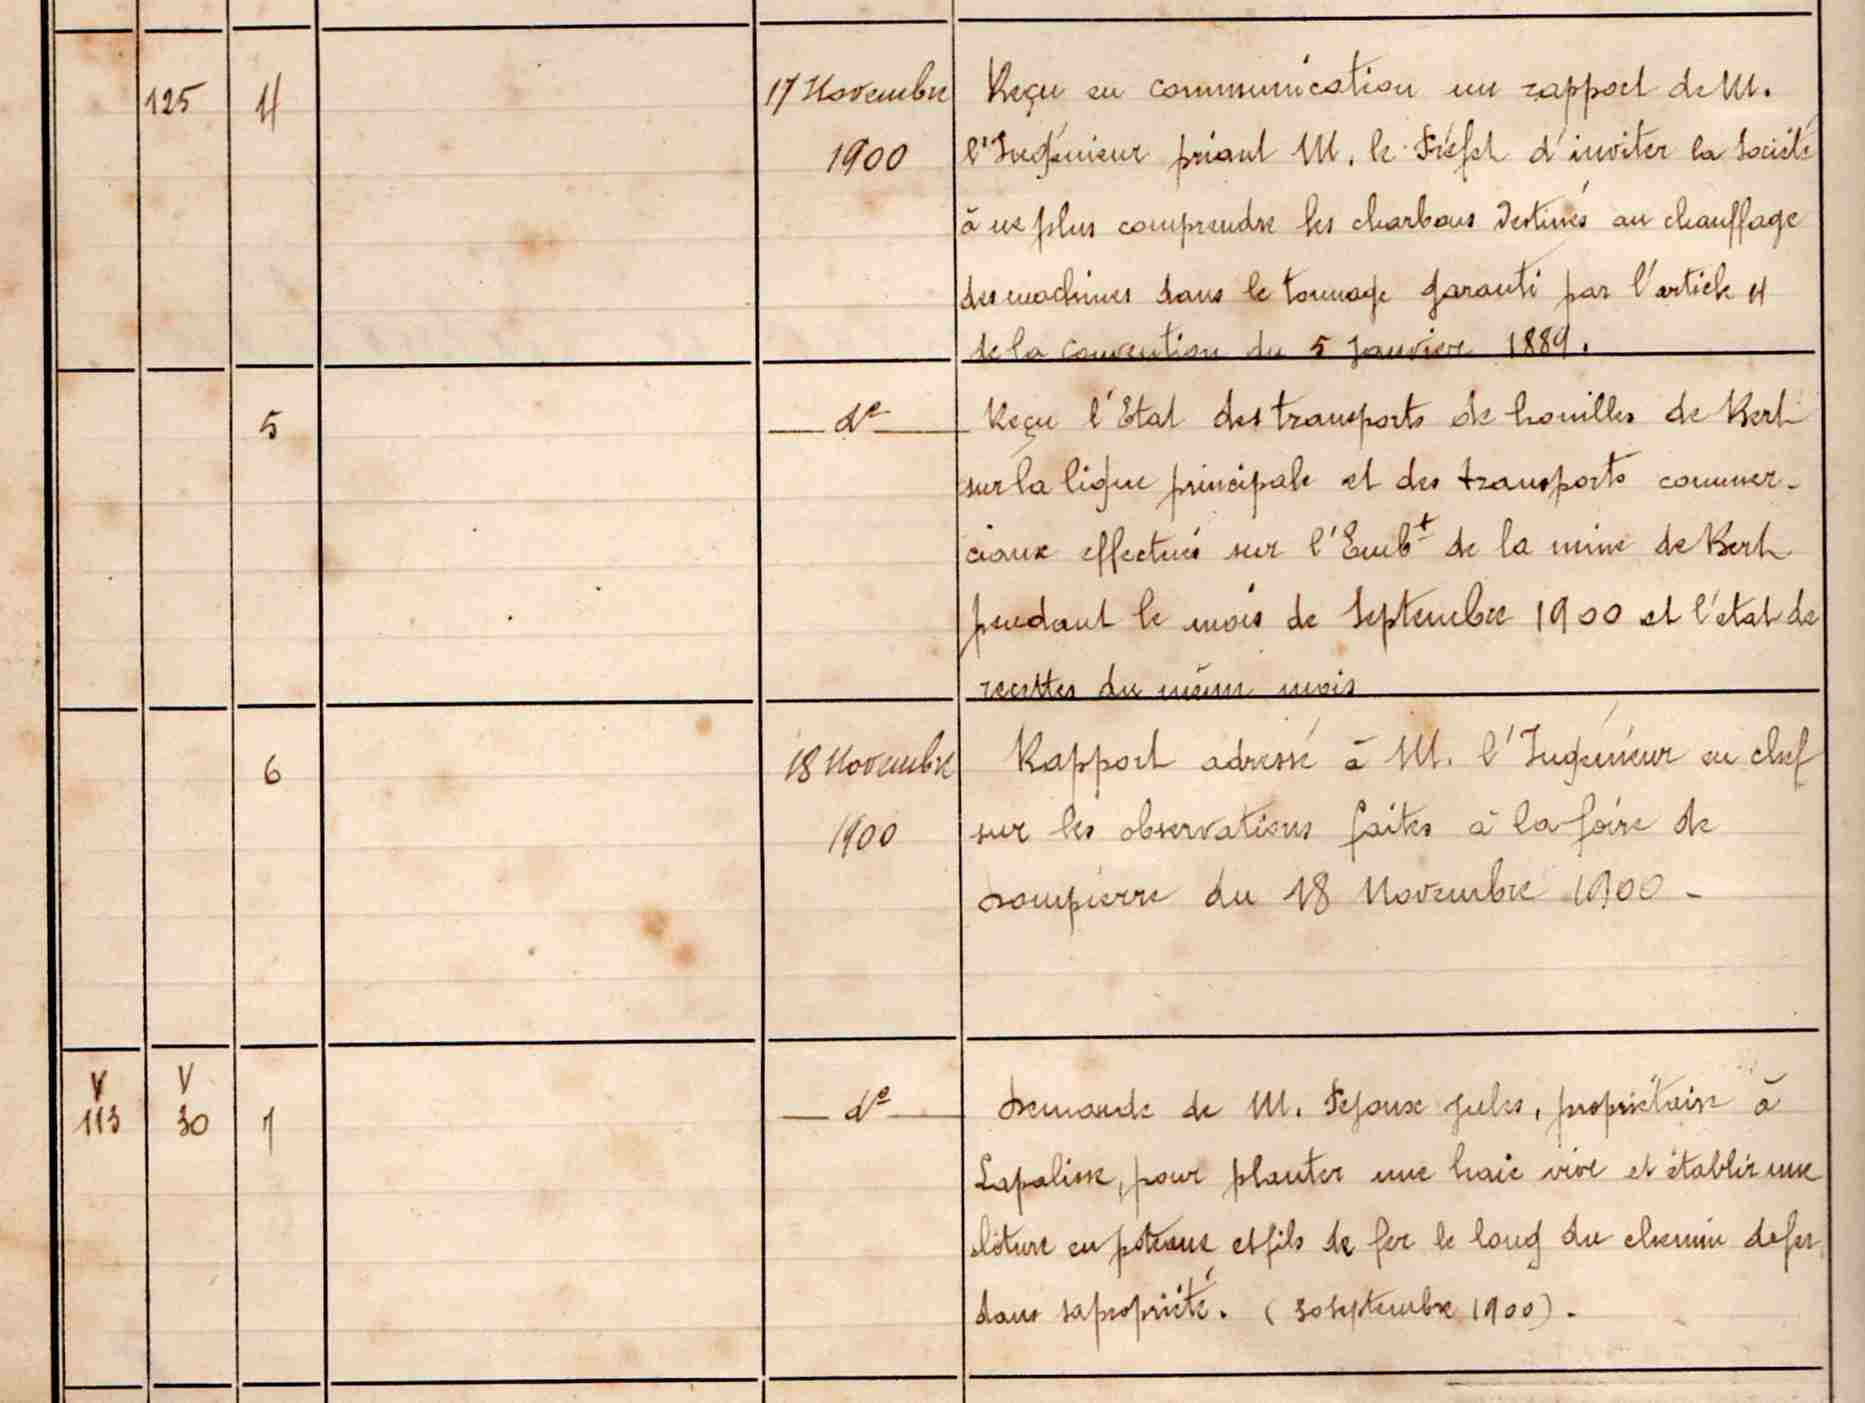 125 4 17 Novembre Reçu en communication un rapport de M.
1900 l'Ingénieur priant M. le Préfet d'inviter la Société
à ne plus comprendre les charbons destinés au chauffage
des machines dans le tonnage garanti par l'article 4
de la Convention du 5 Janvier 1889.
5 — dº — Reçu l'Etat des transports de houilles de Bert
sur la ligne principale et des transports commer-
ciaux effectués sur l'Embt de la mine de Bert
pendant le mois de Septembre 1900 et l'état de
recettes du même mois
6 18 Novembre Rapport adressé à M. l'Ingénieur en chef
1900 sur les observations faites à la foire de
Dompierre du 18 Novembre 1900 -
V V
113 30 7 — dº — Demande de M. Jules, propriétaire à
Lapalisse, pour planter une haie vive et établir une
clôture en poteaux et fils de fer le long du chemin de fer
dans sa propriété. (30 septembre 1900). -